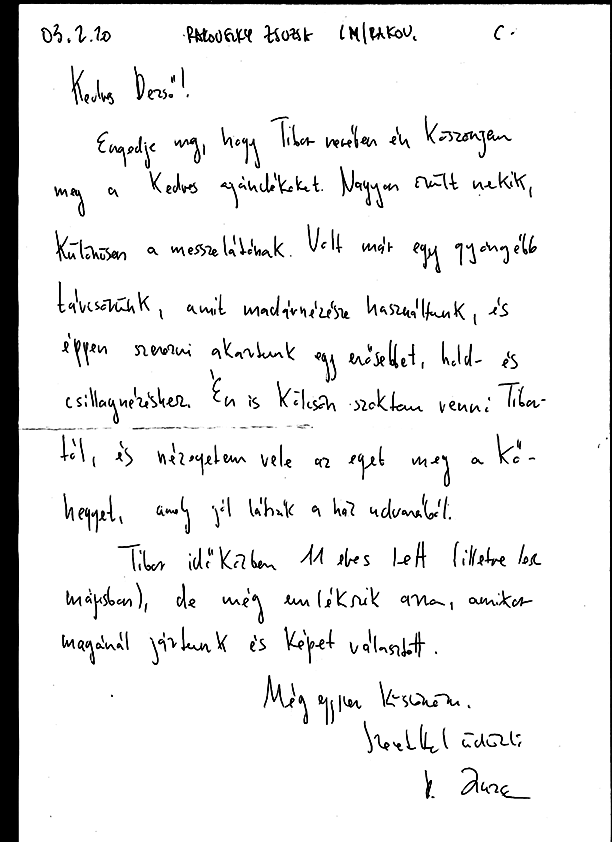 03.2.20 RAKOVSZKY ZSUZSA LM/RAKOV. C.
Kedves Dezső!
Engedje meg, hogy Tibor nevében én köszönjem
meg a kedves ajándékokat. Nagyon örült nekik,
különösen a messzelátónak. Volt már egy gyengébb
távcsövünk, amit madárnézésre használtunk, és
éppen szerezni akartunk egy erősebbet, hold- és
csillagnézéshez. Én is kölcsön szoktam venni Tibor-
tól, és nézegetem vele az eget meg a Kő-
hegyet, amely jól látszik a ház udvarából.
Tibor időközben 11 éves lett (illetve lesz
májusban), de még emlékszik arra, amikor
magánál jártunk és képet választott.
Még egyszer köszönöm.
Szeretettel üdvözli
Zsuzsa